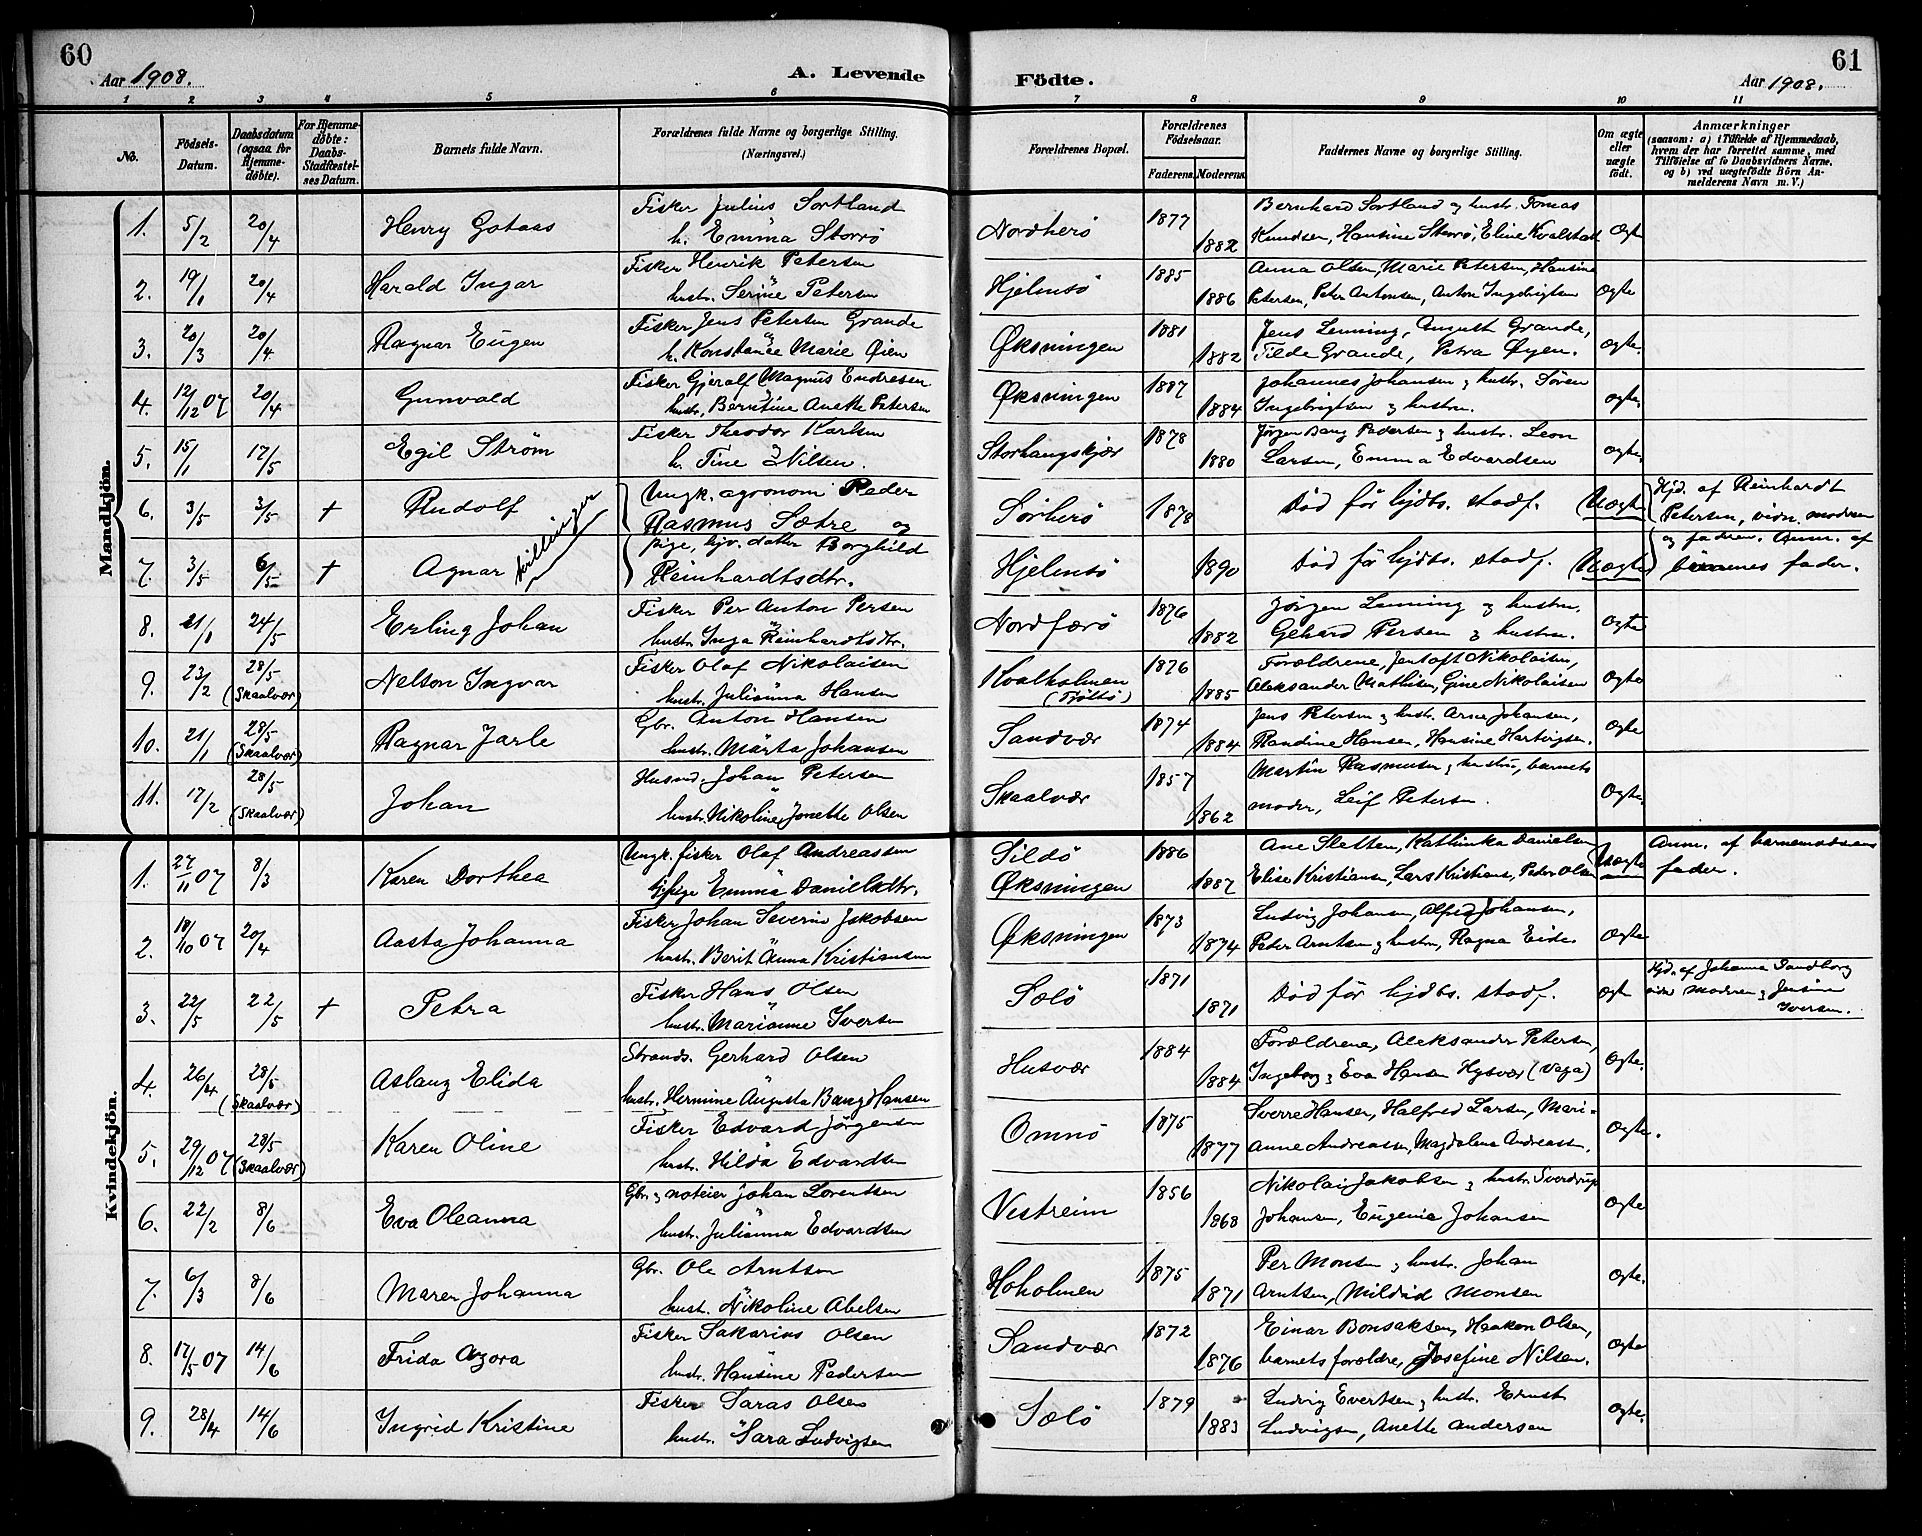 60
Aar 1908.
A. Levende
Födte.
61
Aar 1908.
1 2 3 4 5 6 7 8 9 10 11
No.
Födsels-Datum.
Daabsdatum (ogsaa for Hjemme-döbte).
For Hjemme-döbte: Daabs-Stadfæstel-ses Datum.
Barnets fulde Navn.
Forældrenes fulde Navne og borgerlige Stilling. (Næringsvei.)
Forældrenes Bopæl.
Forældrenes Födselsaar.
Faderens. Moderens.
Faddernes Navne og borgerlige Stilling.
Om ægte eller uægte födt.
Anmærkninger
(saasom: a) i Tilfælde af Hjemmedaab, hvem der har forrettet samme, med Tilföielse af to Daabsvidners Navne, og b) ved uægtefödte Börn An-melderens Navn m. V.)
Mandkjön.
1. 5/2 20/4 Henry Gotaas Fisker Julius Sortland Nordherö 1877 Bernhard Sortland og hustr. Tomas
h. Emma Storrö 1882 Knudsen, Hansine Storrö, Eline Kvalstad Ægte
2. 19/1 20/4 Harald Ingar Fisker Henrik Petersen Hjelmsö 1885 Anna Olsen, Marie Petersen, Hansine
hustr. Serine Petersen 1886 Petersen, Peter Antonsen, Anton Ingebrigtsen Ægte
3. 20/3 20/4 Ragnar Eugen Fisker Jens Petersen Grande Øksningen 1881 Jens Lenning, August Grande,
h. Konstance Marie Øien 1882 Tilde Grande, Petra Øyen. Ægte.
4. 12/12 07 20/4 Gunvald Fisker Gjeralf Magnus Endresen Øksningen 1887 Johannes Johansen & hustr. Sören
hustr. Berntine Anette Petersen 1884 Ingebrigtsen & hustru. ægte.
5. 15/1 17/5 Egil Ström Fisker Theodor Karlsen Storhaugskjær 1878 Jörgen Bang Pedersen & hustr. Leon
h. Tine Nilsen. 1880 Larsen, Emma Edvardsen ægte.
6. 3/5 3/5 + Rudolf Ungk. agronom Peder Sörherö 1878 Död för hjdbs. stadf. Uægte Hjd. af Reinhardt
Rasmus Sætre og Petersen, vidn. moderen
tvillinger
7. 3/5 6/5 + Agnar pige, hjv. datter Borghild Hjelmsö 1890 Död för hjdbs. stadf. Uægte og fadren. Anm. af
Reinhardtsdtr. börnenes fader.
8. 21/1 24/5 Erling Johan Fisker Per Anton Persen Nordfærö 1876 Jörgen Lenning & hustru,
hustr. Inga Reinhardtsdtr. 1882 Gehard Persen & hustru. ægte
9. 23/2 28/5 (Skaalvær) Nelson Ingvar Fisker Olaf Nikolaisen Kvalholmen (Tjöttö) 1876 Forældrene, Jentoft Nikolaisen,
hustr. Julianna Hansen 1885 Aleksander Mathisen, Gine Nikolaisen ægte
10. 21/1 28/5 (Skaalvær) Ragnar Jarle Gbr. Anton Hansen Sandvær 1874 Jens Petersen & hustr. Arne Johansen,
hustr. Marta Johansen 1884 Randine Hansen, Hansine Hartvigsen. ægte
11. 17/2 28/5 (Skaalvær) Johan Husmd. Johan Petersen Skaalvær 1857 Martin Rasmusen & hustru, barnets
hustr. Nikoline Jonette Olsen 1862 moder, Leif Petersen. Ægte.
Kvindekjön.
1. 27/11 07 8/3 Karen Dorthea Ungk. fisker Olaf Andreassen Sildö 1886 Ane Sletten, Kathinka Danielsen Uægte Anm. af barnemoderens
pige Emma Danielsdtr. Øksningen 1887 Elise Kristiansen, Lars Kristians, Peder Olsen fader.
2. 18/10 07 20/4 Aasta Johanna Fisker Johan Severin Jakobsen Øksningen 1873 Ludvig Johansen, Alfred Johansen,
hustr. Berit Anna Kristiansen 1874 Peder Arntsen & hustru, Ragna Eide. Ægte
3. 22/5 22/5 + Petra Fisker Hans Olsen Sölö 1871 Död för hjdbs. stadf. Ægte Hjd. af Johanna Sandberg
hustr. Marianne Iversen 1871 vidn moderen & Jensine
Iversen.
4. 26/4 28/5 (Skaalvær) Aslaug Elida Strands. Gerhard Olsen Husvær 1884 Forældrene, Aleksander Petersen,
hustr. Hermine Augusta Bang Hansen 1884 Ingeborg & Eva Hansen Hysvær (Vega) ægte.
5. 29/12 07 28/5 (Skaalvær) Karen Oline Fisker Edvard Jörgensen Omnö 1875 Sverre Hansen, Halfred Larsen, Mari-
hustr. Hilda Edvardsen 1877 anne Andreassen, Magdalena Andreassen. Ægte.
6. 22/2 8/6 Eva Oleanna Gbr & noteier Johan Lorentsen Vestreim 1856 Nikolai Jakobsen & hustr. Sverdrup
hustr. Julianna Edvardsen 1868 Johansen, Eugenie Johansen Ægte
7. 6/3 8/6 Maren Johanna Gbr. Ole Arntsen Hoholmen 1875 Per Monsen & hustr. Johan
hustr. Nikoline Abelsen 1871 Arntsen, Mildrid Monsen Ægte.
8. 17/5 07 14/6 Frida Agora Fisker Sakarias Olsen Sandvær 1872 Einar Bonsaksen, Haakon Olsen,
hustr. Hansine Pedersen 1876 barnets forældre, Josefine Nilsen. Ægte
9. 28/4 14/6 Ingrid Kristine Fisker Saras Olsen Sölö 1879 Ludvig Evertsen & hustr. Ernst
hustr. Sara Ludvigsen 1883 Ludvigsen, Anette Andersen Ægte.